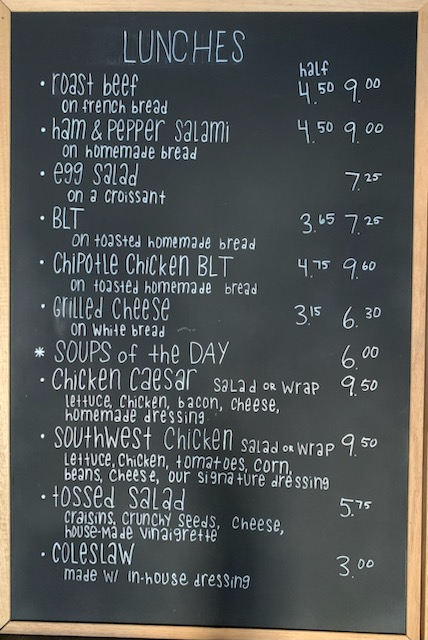 LUNCHES
half
• roast beef 4.50 9.00
on french bread
• ham & pepper salami 4.50 9.00
on homemade bread
• egg salad 7.25
on a croissant
• BLT 3.65 7.25
on toasted homemade bread
• Chipotle Chicken BLT 4.75 9.60
on toasted homemade bread
• Grilled Cheese 3.15 6.30
on white bread
* SOUPS of the DAY 6.00
• Chicken Caesar Salad or Wrap 9.50
lettuce, chicken, bacon, cheese,
homemade dressing
• Southwest Chicken Salad or Wrap 9.50
Lettuce, Chicken, tomatoes, corn,
beans, cheese, our signature dressing
• tossed salad 5.75
craisins, crunchy seeds, cheese,
house-made vinaigrette
• coleslaw 3.00
made w/ in-house dressing